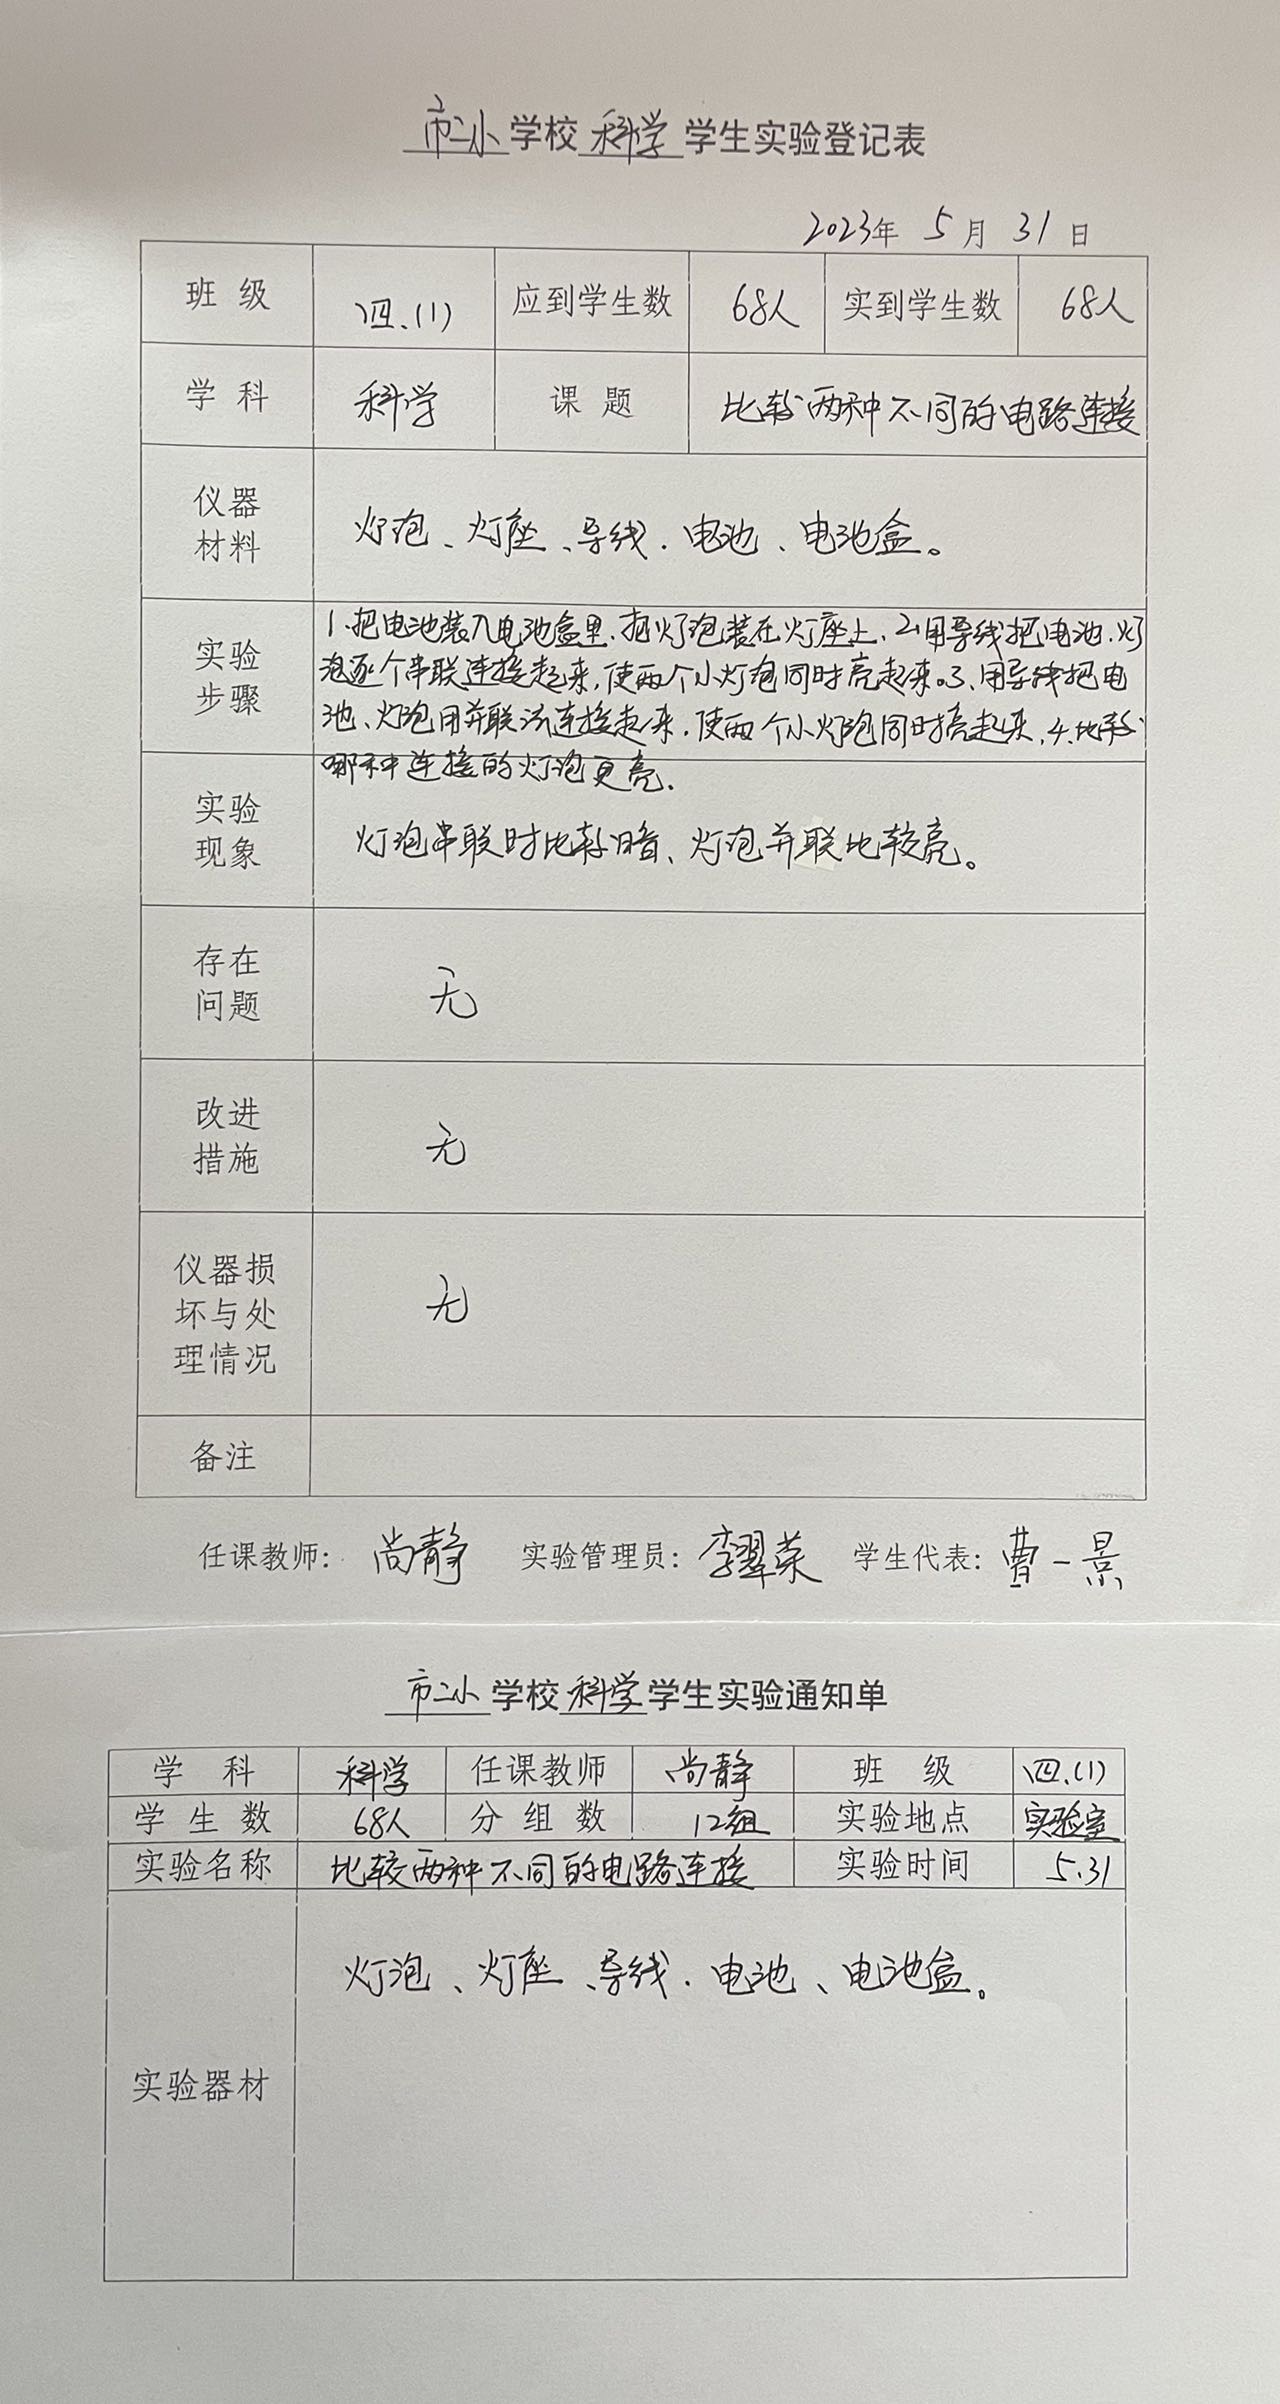 市二小学校科学学生实验登记表
2023年 5月 31日
班级 四.(1) 应到学生数 68人 实到学生数 68人
学科 科学 课题 比较两种不同的电路连接
仪器
材料
灯泡、灯座、导线.电池、电池盒。
实验
步骤
1.把电池装入电池盒里.把灯泡装在灯座上.2.用导线把电池.灯
泡逐个串联连接起来,使两个小灯泡同时亮起来。3、用导线把电
池、灯泡用并联法连接起来.使两个小灯泡同时亮起来.4.比较
哪种连接的灯泡更亮.
实验
现象
灯泡串联时比较暗、灯泡并联比较亮。
存在
问题
无
改进
措施
无
仪器损
坏与处
理情况
无
备注
任课教师: 尚静 实验管理员: 李翠荣 学生代表: 曹一景
市二小学校科学学生实验通知单
学科 科学 任课教师 尚静 班级 四.(1)
学生数 68人 分组数 12组 实验地点 实验室
实验名称 比较两种不同的电路连接 实验时间 5.31
实验器材
灯泡、灯座、导线.电池、电池盒。